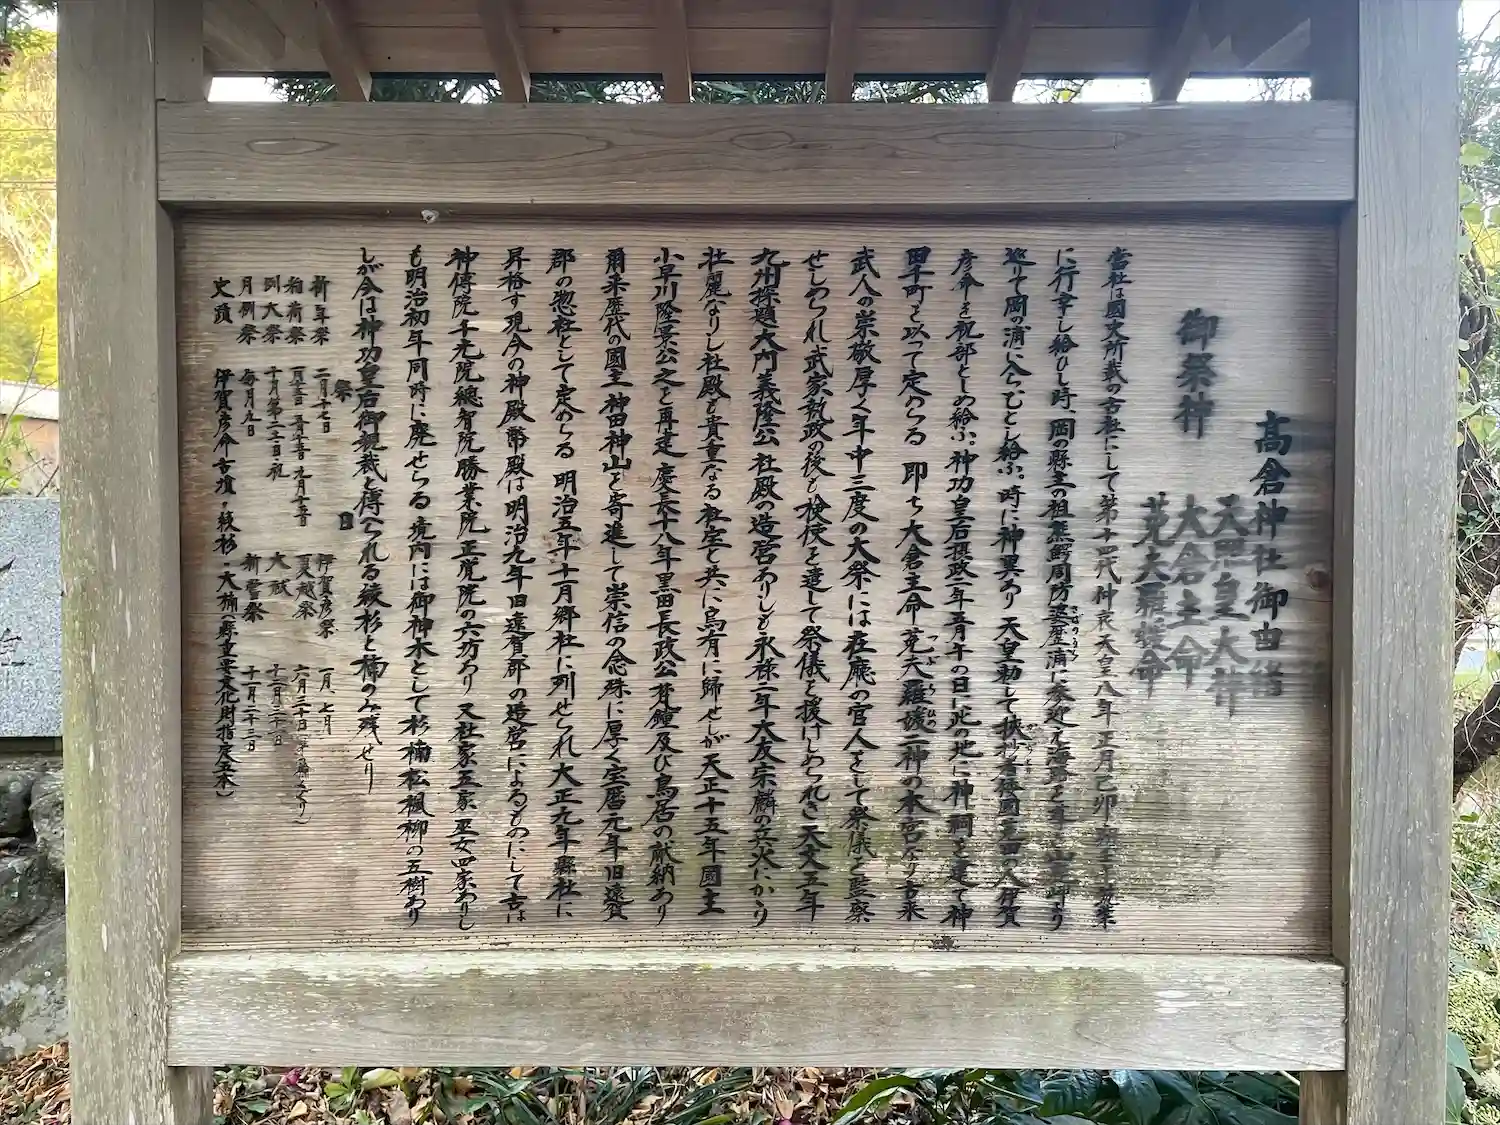 高倉神社御由緒
御祭神
天照皇大神
大倉主命
菟夫羅媛命
当社は國史所載の古社にして第十四代仲哀天皇八年正月己卯朔
に行幸し給ひし時、岡の縣主の祖熊鰐周防沙麼浦に参迎え海路を導き山鹿岬より
巡りて岡の浦に入らむとし給ふ。時に神異あり天皇勅して挾杪者倭國菟田の人伊賀
彦命を祝部としめ給ふ。神功皇后摂政二年五月午の日に此の地に神祠を建て神
田千町を以って定めらる 即ち大倉主命菟夫羅媛二神の本宮なり古来
武人の崇敬厚く年中三度の大祭には在廳の官人をして祭儀を監察
せしめられ武家執政の後も検使を遣して祭儀を援けしめられき天文五年
九州探題大内義隆公社殿の造営ありしも永禄二年大友宗麟の兵火にかゝり
壮麗なりし社殿も貴重なる社宝と共に烏有に歸せしが天正十五年國主
小早川隆景公之を再建慶長十八年黒田長政公梵鐘及び鳥居の献納あり
爾来歴代の國主神田神山を寄進して崇信の念殊に厚く宝暦元年旧遠賀
郡の惣社として定めらる 明治五年十一月郷社に列せられ大正九年縣社に
昇格す現今の神殿幣殿は明治九年旧遠賀郡の造営によるものにして古は
神傳院千光院總智院勝業院正覚院の六坊あり 又社家五家巫女四家ありし
も明治初年同時に廃せらる 境内には御神木として杉楠松楓柳の五樹あり
しが今は神功皇后御親栽と傳へられる綾杉と楠のみ残せり
祭 日
新年祭 二月十七日 伊賀彦祭 一月、七月
祈前祭 夏越祭 六月三十日
例大祭 十月第二土日、祝 大祓 十二月三十日
月例祭 毎月九日 新嘗祭 十一月二十三日
史蹟 伊賀彦命古墳・綾杉・大楠(県重要文化財指定至木)